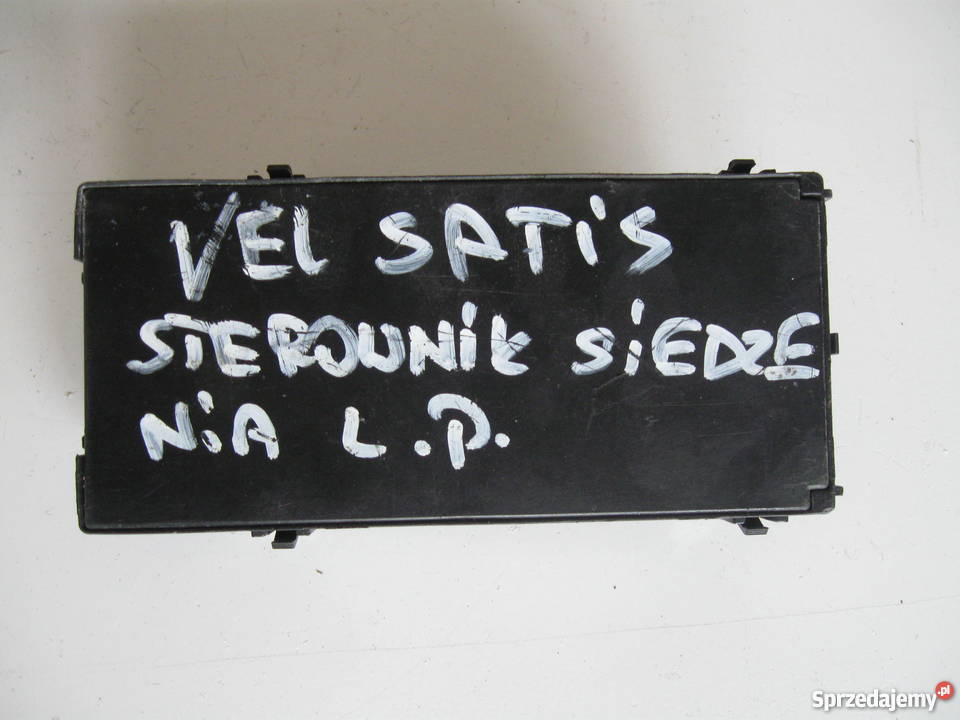 VEL SATiS
STEROWNiK SiEDZE
NiA L.P.
Sprzedajemy.pl